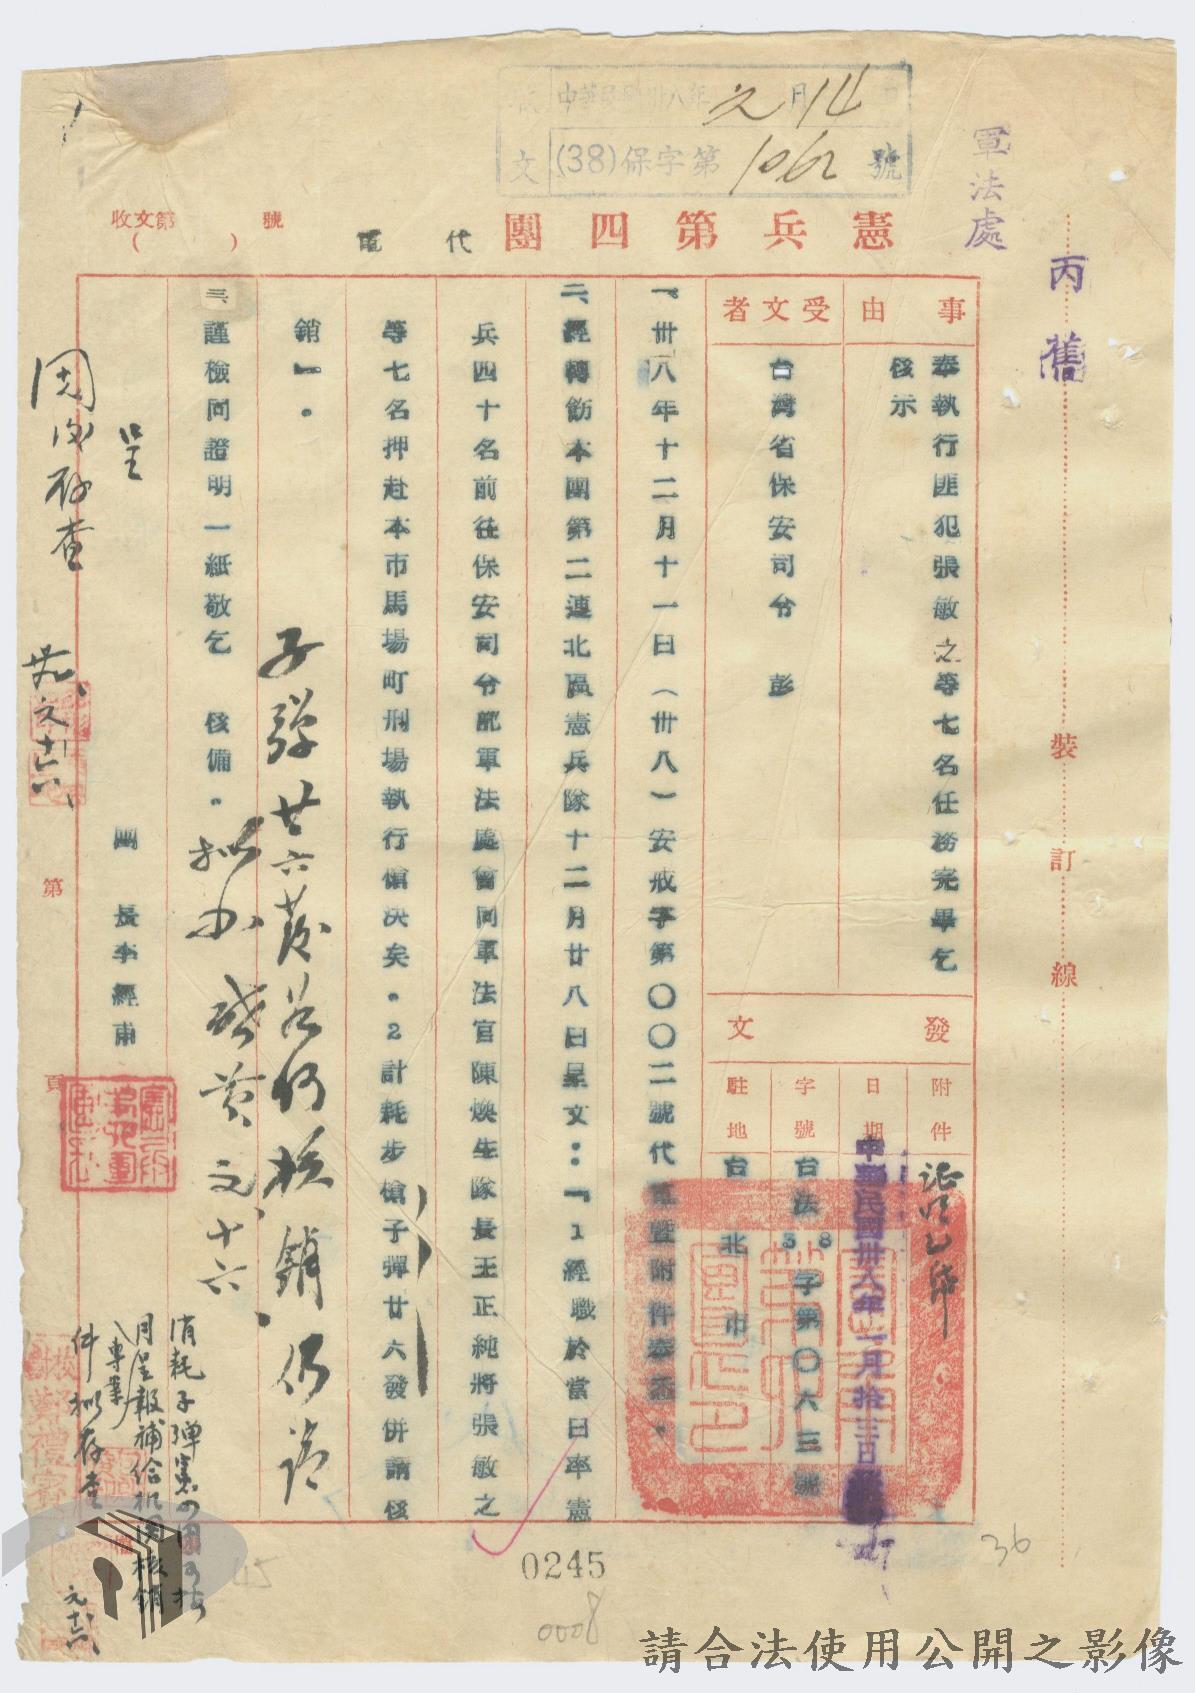 中華民國卅八年元月14日
收文
(38)保字第1062號
軍法處
丙
舊
憲兵第四團
代電
收文第( )號
裝訂線
事由
奉執行匪犯張敏之等七名任務完畢乞
核示
受文者
台灣省保安司令 彭
發文
附件
證明乙紙
日期
中華民國卅八年一月拾三日
字號
台法38字第〇六三號
駐地
台北市
一、卅八年十二月十一日(卅八)安戒字第〇〇二號代電暨附件奉悉。
二、經轉飭本團第二連北區憲兵隊十二月廿八日呈文:「1經職於當日率憲
兵四十名前往保安司令部軍法處會同軍法官陳煥生隊長王正純將張敏之
等七名押赴本市馬場町刑場執行槍決矣。2計耗步槍子彈廿六發併請核
銷」。
三、謹檢同證明一紙敬乞 核備。
團長李經甫
子彈廿六發如何核銷仍請
擬办
元、十六、
呈
閱後存查
元十六
消耗子彈憲四團可按
月呈報補給机関核銷
(專業)
件擬存查
元十六
第 頁
0245
45
0008
36
請合法使用公開之影像